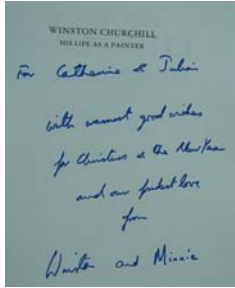 WINSTON CHURCHILL
HIS LIFE AS A PAINTER
For Catherine & Julian
with warmest good wishes
for Christmas & the New Year
and our fondest love
from
Winston and Minnie